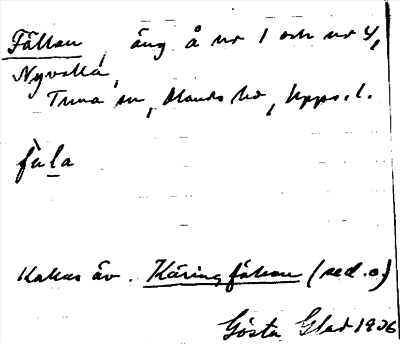 Fållan, äng å nr 1 och nr 4,
Nyvalla,
Tuna sn, Olands hd, Upps. l.
fala
Kallas äv. Käringfållan (sed. o)
Gösta Glad 1936